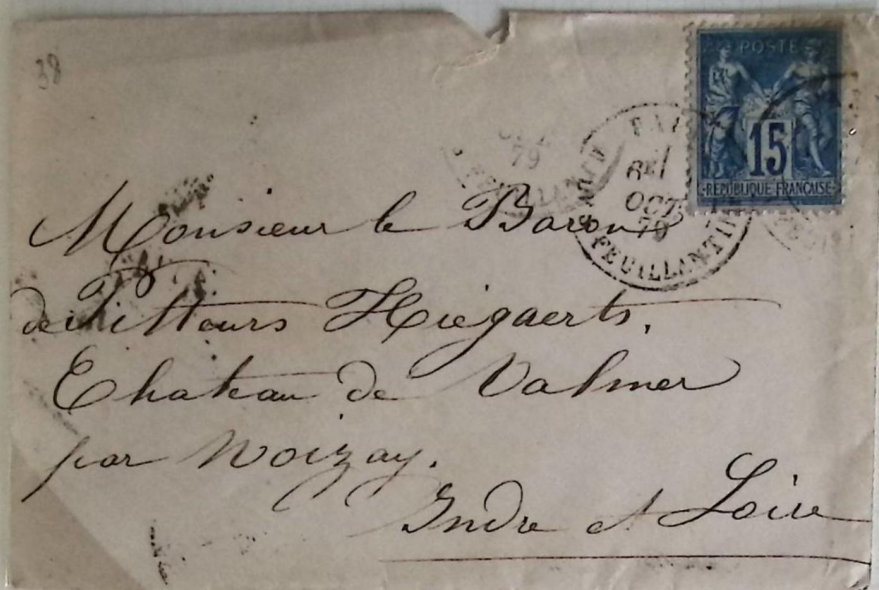 38
POSTE
15
RÉPUBLIQUE FRANÇAISE
PARIS
6E/
OCT
79
FEUILLANTIN
79
Monsieur le Baron
de Pitteurs Hiégaerts.
Chateau de Valmer
par Noizay.
Indre et Loire